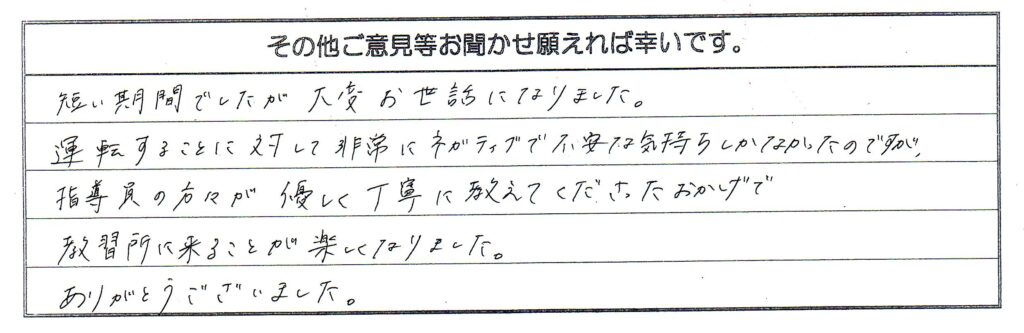 その他ご意見等お聞かせ願えれば幸いです。
短い期間でしたが 大変お世話になりました。
運転することに対して非常にネガティブで不安な気持ちしかなかったのですが、
指導員の方々が 優しく丁寧に教えてくださったおかげで
教習所に来ることが楽しくなりました。
ありがとうございました。